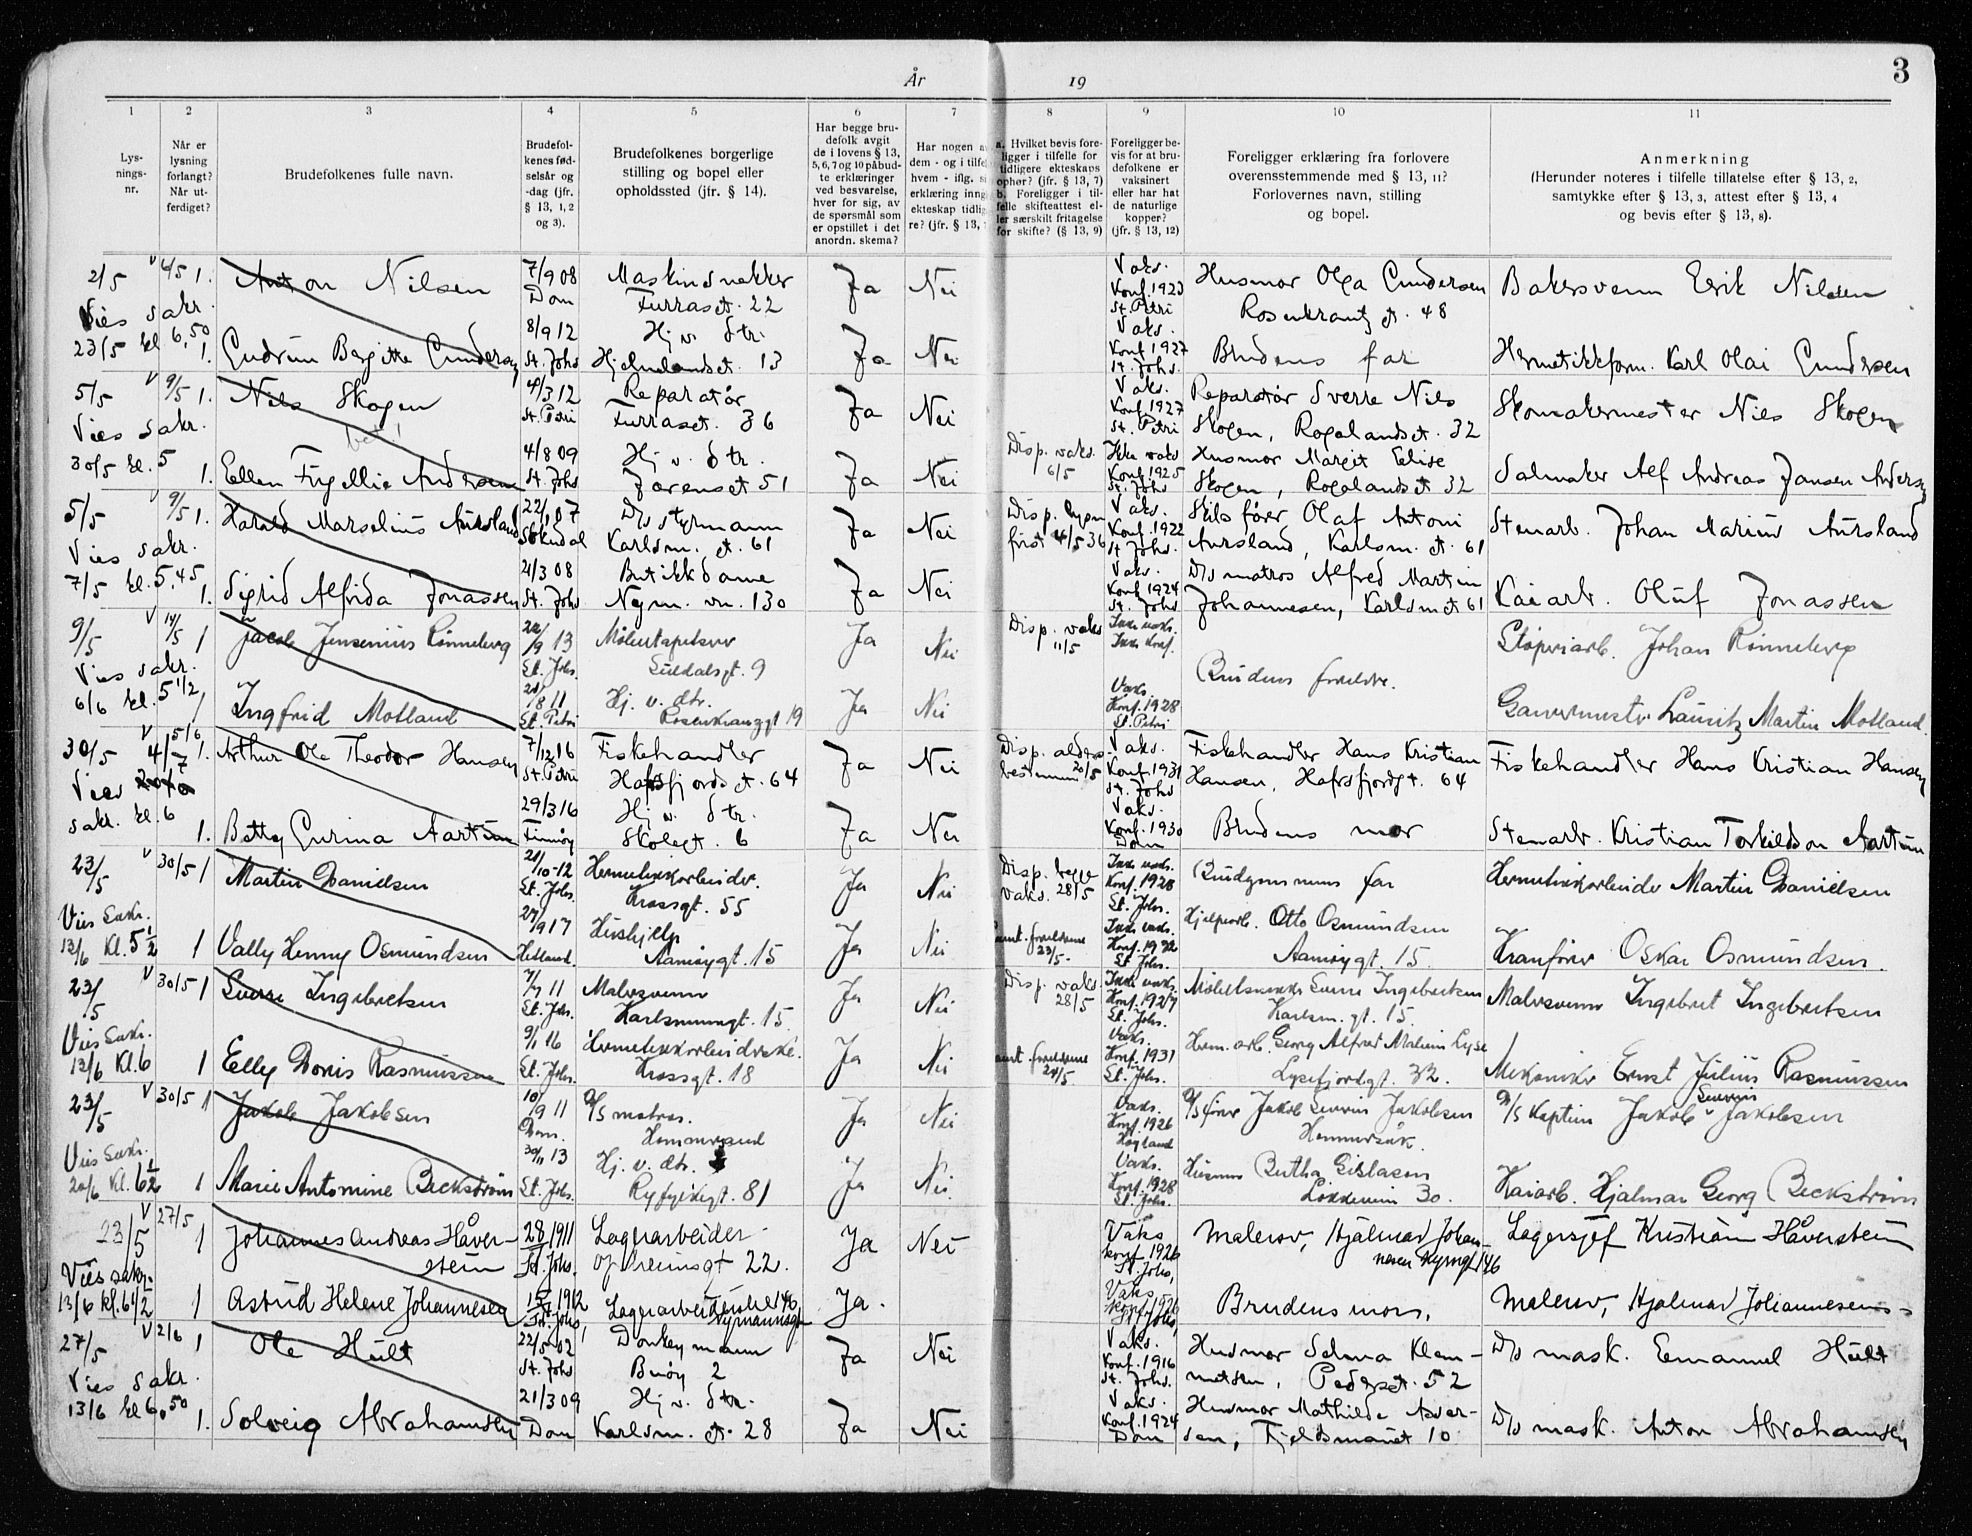 År 19
3
1 2 3 4 5 6 7 8 9 10 11
Lys-
nings-
nr.
Når er
lysning
forlangt?
Når ut-
ferdiget?
Brudefolkenes fulle navn.
Brudefol-
kenes fød-
selsår og
-dag (jfr.
§ 13, 1, 2
og 3).
Brudefolkenes borgerlige
stilling og bopel eller
opholdssted (jfr. § 14).
Har begge bru-
defolk avgit
de i lovens § 13,
5, 6, 7 og 10 påbud-
te erklæringer
ved besvarelse,
hver for sig, av
de spørsmål som
er opstillet i det
anordn. skema?
Har nogen a
dem - og i tilfel
hvem - iflg. si
erklæring inng
ekteskap tidlig
re? (jfr. § 13,
a. Hvilket bevis fore-
ligger i tilfelle for
tidligere ekteskaps
ophør? (jfr. § 13, 7)
b. Foreligger i til-
felle skifteattest el-
ler særskilt fritagelse
for skifte? (§ 13, 9)
Foreligger be-
vis for at bru-
defolkene er
vaksinert
eller har hat
de naturlige
kopper?
(jfr. § 13, 12)
Foreligger erklæring fra forlovere
overensstemmende med § 13, 11?
Forlovernes navn, stilling
og bopel.
Anmerkning
(Herunder noteres i tilfelle tillatelse efter § 13, 2,
samtykke efter § 13, 3, attest efter § 13, 4
og bevis efter § 13, 8).
2/5 v 4/5 1. Anton Nilsen 7/9 08 Maskinsnekker Ja Nei Vaks. Husmor Olga Gundersen Bakersvenn Erik Nilsen
Vies sakr. Dom Furrasgt. 22 Konf. 1923 Rosenkrantzgt. 48
St. Petri
23/5 kl 6,50 1. Gudrun Bergitte Gundersen 8/9 12 Hj. v. dtr. Ja Nei Vaks. Brudens far Hermetikkform. Karl Olai Gundersen
St. Johs Hjelmelandsgt. 13 Konf. 1927
St. Johs.
5/5 v 9/5 1. Nils Skogen 4/3 12 Reparatør Ja Nei Vaks. Reparatør Sverre Nils Skomakermester Nils Skogen
Vies sakr. St. Petri Furrasgt. 36 Konf. 1927 Skogen, Rogalandsgt. 32
St. Petri
30/5 kl. 5 1. Ellen Andersen 4/8 09 Hj. v. dtr. Ja Nei Disp. vaks. 6/5 Ikke vaks Husmor Margit Elise Salmaker Alf Andreas Jansen Andersen
St. Johs Jærensgt 51 Konf. 1925 Skogen, Rogalandsgt 32
St. Johs
5/5 v 9/5 1. Harald Marselius Aursland 22/1 07 D/s styrmann Ja Nei Disp. lysn. Vaks. Skibsfører Olaf Antoni Stenarb. Johan Marius Aursland
Vies sakr. Sokndal Karlsm. gt. 61 først 4/5 36 Konf. 1922 Aursland, Karlsm. gt. 61
St. Johs.
7/5 kl. 5,45 1. Sigrid Alfrida Jonassen 21/3 08 Butikkdame Ja Nei Vaks. D/s matros Alfred Martin Kaiarb. Oluf Jonassen
St. Johs Nym. vn. 130 Konf. 1924 Johannesen, Karlsm gt 61
St. Johs
9/5 v 14/5 1 Jacob Jensenius Rönneberg 22/9 13 Møbeltapetserer Ja Nei Disp. vaks 11/5 Ikke vaks. Støperiarb. Johan Rönneberg
Vies sakr. St. Johs. Suldalsgt. 9 Ikke konf.
Brudens foreldre.
6/6 kl. 5 1/2 1 Ingfrid Motland 21/8 11 Hj. v. dtr. Ja Nei Vaks. Garvermester Lauritz Martin Motland
St. Petri Rosenkranzgt 19 Konf. 1928
St. Petri
30/5 v 5/6 4/7 1. Arthur Ole Theodor Hansen 7/12 16 Fiskehandler Ja Nei Disp. alders- Vaks. Fiskehandler Hans Kristian Fiskehandler Hans Kristian Hansen
Vies St. Petri Hafrsfjordsgt. 64 bestemm 20/5 Konf. 1931 Hansen, Hafrsfjordgt. 64
St. Johs
sakr. kl. 6 1. Betty Gurina Aartun 29/3 16 Hj. v. dtr. Ja Nei Vaks. Brudens mor Stenarb. Kristian Torkildson Aartun
Finnøy Skolegt. 6 Konf. 1930
Dom
23/5 v 30/5 1 Martin Danielsen 21/10-12 Hermetikkarbeider. Ja Nei Disp. begge Ikke vaks. Brudgommens far Hermetikkarbeider Martin Danielsen
St. Johs. Krossgt. 55 vaks. 28/5 Konf. 1928
St. Johs.
Vies Sakr. 13/6 Kl. 5 1/2 1 Vally Henny Osmundsen 27/9 17 Hushjelp Ja Nei Samt. foreldrene 23/5. Ikke vaks. Hjelpearb. Otto Osmundsen Kranfører Oskar Osmundsen.
Hetland. Aamøygt. 15 Konf. 1932 Aamøygt. 15.
St. Johs.
23/5 v 30/5 1 Sverre Ingebretsen 7/7 11 Malersvenn Ja Nei Disp. vaks. 28/5 Ikke vaks. Møbelsnekker Sverre Ingebretsen Malersvenn Ingebret Ingebretsen
St. Johs. Karlsminnegt. 15. Konf. 1927 Karlsm. gt. 15.
St. Johs.
Vies Sakr. 13/6 Kl. 6 1 Elly Doris Rasmussen 9/1 16 Hermetikkarbeiderske. Ja Nei Samt. foreldrene 24/5 Vaks. Herm. arb. Georg Alfred Malum Lyse Mekaniker Ernst Julius Rasmussen
St. Johs. Krossgt. 18 Konf. 1931 Lysefjordgt. 32.
St. Johs.
23/5 v 30/5 1 Jakob Jakobsen 10/9 11 D/S matros. Ja Nei Vaks. D/S fører Jakob Severin Jakobsen D/S Kaptein Jakob Severin Jakobsen
Dom. Hommersand Konf. 1926 Hommersåk.
Høgland
Vies Sakr. 20/6 Kl. 6 1/2 1 Marie Antomine Beckstrøm 30/11 13 Hj. v. dtr. Ja Nei Vaks. Husmor Bertha Gislasen Kaiarb. Hjalmar Georg Beckstrøm
St. Johs. Ryfylkegt. 81 Konf. 1928 Løkkeveien 30.
St. Johs.
23/5 v 27/5 1 Johannes Andreas Håver- 28 1911 Lagerarbeider Ja Nei Vaks Malerov, Hjalmar Johan- Lagersjef Kristian Håverstein
stein St. Johs. Opheimsgt 22. konf. 1926 nesen Nymgt 146
St. Johs,
Vies sakr. 13/6 kl. 6 1/2 1 Astrid Helene Johannesen 15 1912 Lagerarbeiderske 146 Ja. Vaks. Brudens mor, Malerov, Hjalmar Johannesen
St. Johs, Nymannsgt konf. 1926
St. Johs,
27/5 v 2/6 1 Ole Hult 22/5-02 Donkeymann Ja Nei Vaks. Husmor Selma Klem- D/s mask. Emanuel Hult
Vies sakr. St. Johs Buøy 2 Konf. 1916 metsen, Pedersgt. 52
St. Johs.
13/6 kl 6,50 1. Solveig Abrahamsen 21/3 09 Hj. v. dtr. Ja Nei Vaks. Husmor Mathilde Asser- D/s mask. Anton Abrahamsen
Dom Karlsm. gt. 28 Konf. 1924 sen, Fjeldsmauet 10
Dom